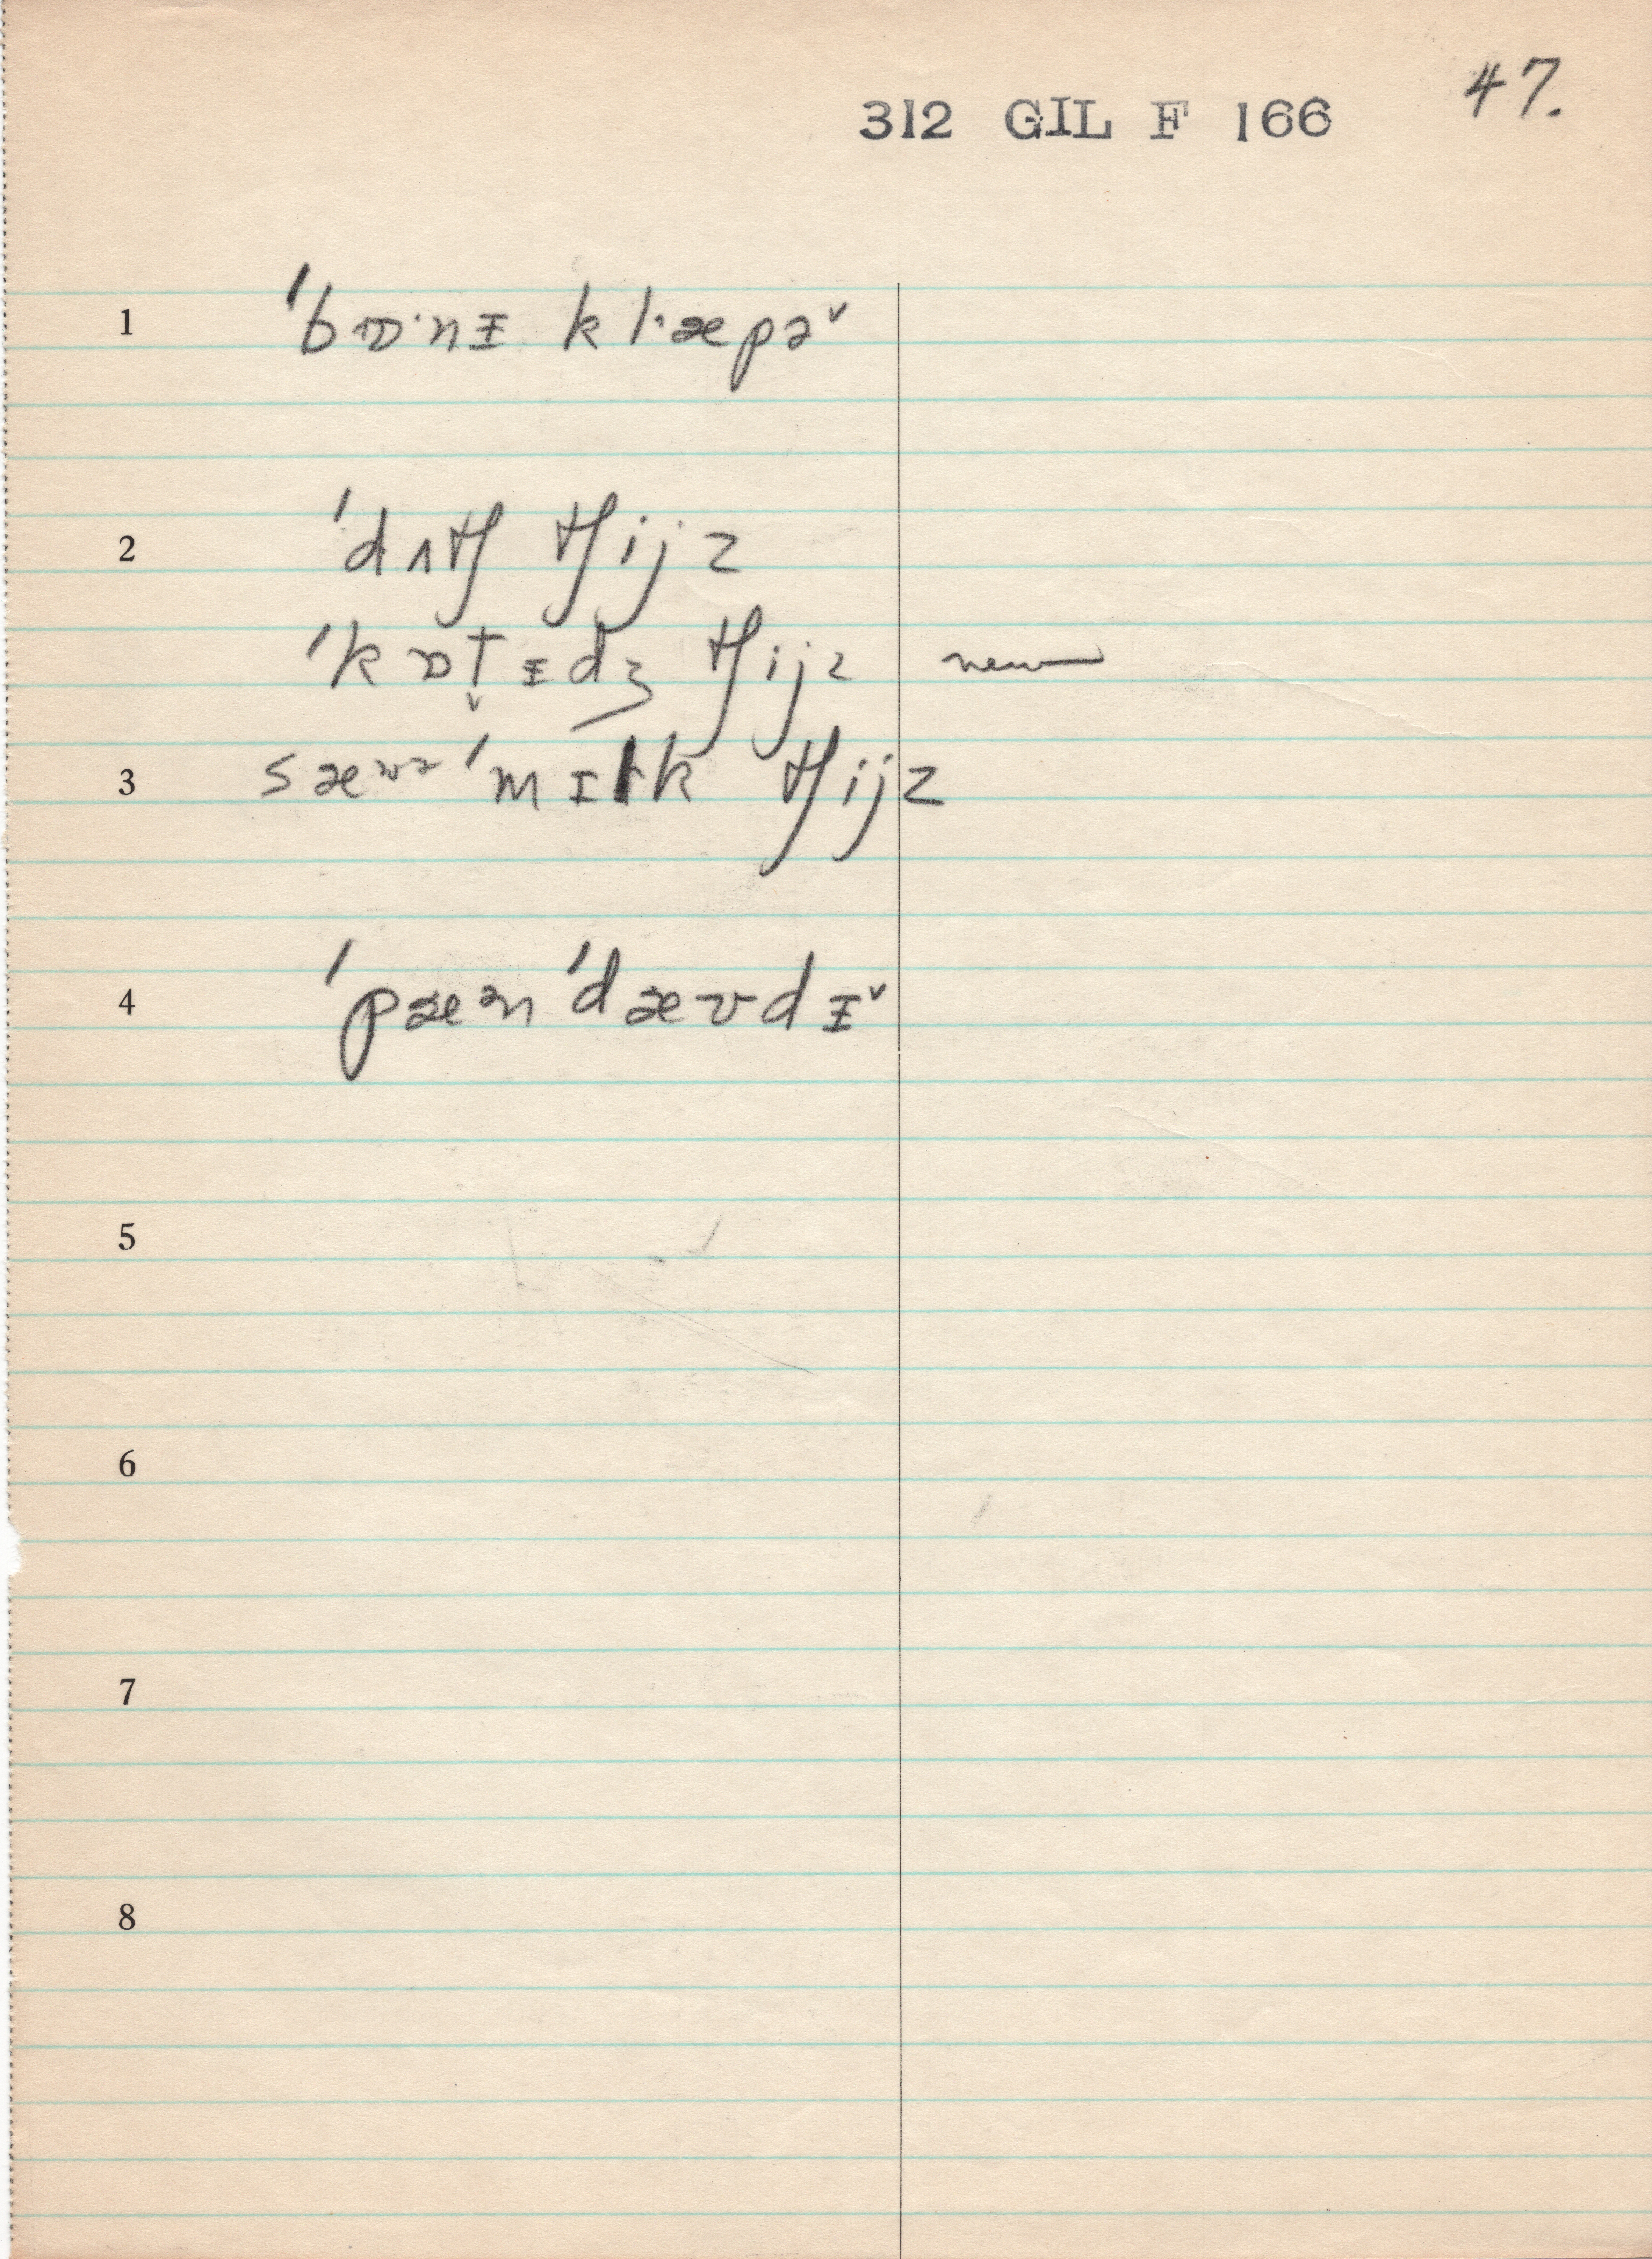 312 GIL F 166 47.
1 ˈbɒ·nɪ kl·æpə˅
2 ˈdʌtʃ tʃijz
ˈkɒt̬ɪdʒ tʃijz new
3 sæʊə ˈmɪlk tʃijz
4 ˈpæən ˈdævdɪ˅
5
6
7
8